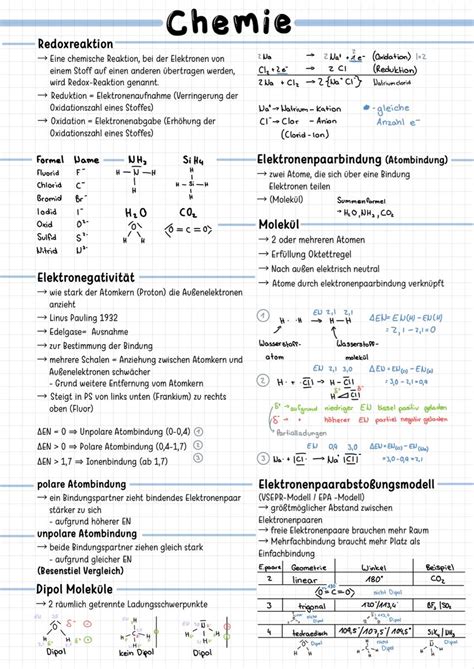 Chemie
Redoxreaktion
→ Eine chemische Reaktion, bei der Elektronen von
einem Stoff auf einen anderen übertragen werden,
wird Redox-Reaktion genannt.
→ Reduktion = Elektronenaufnahme (Verringerung der
Oxidationszahl eines Stoffes)
→ Oxidation = Elektronenabgabe (Erhöhung der
Oxidationszahl eines Stoffes)
2 Na → 2 Na⁺ + 2 e⁻ (Oxidation) 1·2
Cl₂ + 2e⁻ → 2 Cl⁻ (Reduktion)
2 Na + Cl₂ → 2 {Na⁺Cl⁻} Natriumchlorid
Na⁺ → Natrium-Kation
Cl⁻ → Clor - Anion
(Clorid-Ion)
- gleiche
Anzahl e⁻
Formel Name
Fluorid F⁻
Chlorid Cl⁻
Bromid Br⁻
Iodid I⁻
Oxid O²⁻
Sulfid S²⁻
Nitrid N³⁻
NH₃
H – N – H
H
SiH₄
H
H – Si – H
H
H₂O
CO₂
O = C = O
Elektronenpaarbindung (Atombindung)
→ zwei Atome, die sich über eine Bindung
Elektronen teilen
→ (Molekül) Summenformel
→ H₂O, NH₃, CO₂
Molekül
→ 2 oder mehreren Atomen
→ Erfüllung Oktettregel
→ Nach außen elektrisch neutral
→ Atome durch elektronenpaarbindung verknüpft
Elektronegativität
→ wie stark der Atomkern (Proton) die Außenelektronen
anzieht
→ Linus Pauling 1932
→ Edelgase= Ausnahme
→ zur Bestimmung der Bindung
→ mehrere Schalen = Anziehung zwischen Atomkern und
Außenelektronen schwächer
- Grund weitere Entfernung vom Atomkern
→ Steigt in PS von links unten (Frankium) zu rechts
oben (Fluor)
ΔEN = 0 ⇒ Unpolare Atombindung (0-0,4) 1
ΔEN > 0 ⇒ Polare Atombindung (0,4-1,7) 2
ΔEN > 1,7 ⇒ Ionenbindung (ab 1,7) 3
1 H · · H → H – H
EN 2,1 2,1
ΔEN = EN(H) – EN(H)
= 2,1 – 2,1 = 0
Wasserstoff-
atom
Wasserstoff-
molekül
2 H · + · Cl → H – Cl
EN 2,1 3,0
= 3,0 – 2,1 = 0,9
H Cl
δ⁺ → aufgrund niedriger EN positiv geladen
δ⁻ → höherer EN partiel negativ geladen
Partialladungen
3 Na · + · Cl → Na⁺ Cl⁻
EN 0,9 3,0
ΔEN = EN(Cl) – EN(Na)
= 3,0 – 0,9 = 2,1
polare Atombindung
→ ein Bindungspartner zieht bindendes Elektronenpaar
stärker zu sich
- aufgrund höherer EN
unpolare Atombindung
→ beide Bindungspartner ziehen gleich stark
- aufgrund gleicher EN
(Besenstiel Vergleich)
Dipol Moleküle
→ 2 räumlich getrennte Ladungsschwerpunkte
Dipol
kein Dipol
Dipol
Elektronenpaarabstoßungsmodell
(VSEPR-Modell / EPA -Modell)
→ größtmöglicher Abstand zwischen
Elektronenpaaren
→ freie Elektronenpaare brauchen mehr Raum
→ Mehrfachbindung braucht mehr Platz als
Einfachbindung
E.paare Geometrie Winkel Beispiel
2 linear 180° CO₂
O = C = O nicht Dipol
3 trigonal
nicht Dipol Dipol
4 tetraedisch 109,5°/107,5°/104,5°
nicht Dipol Dipol